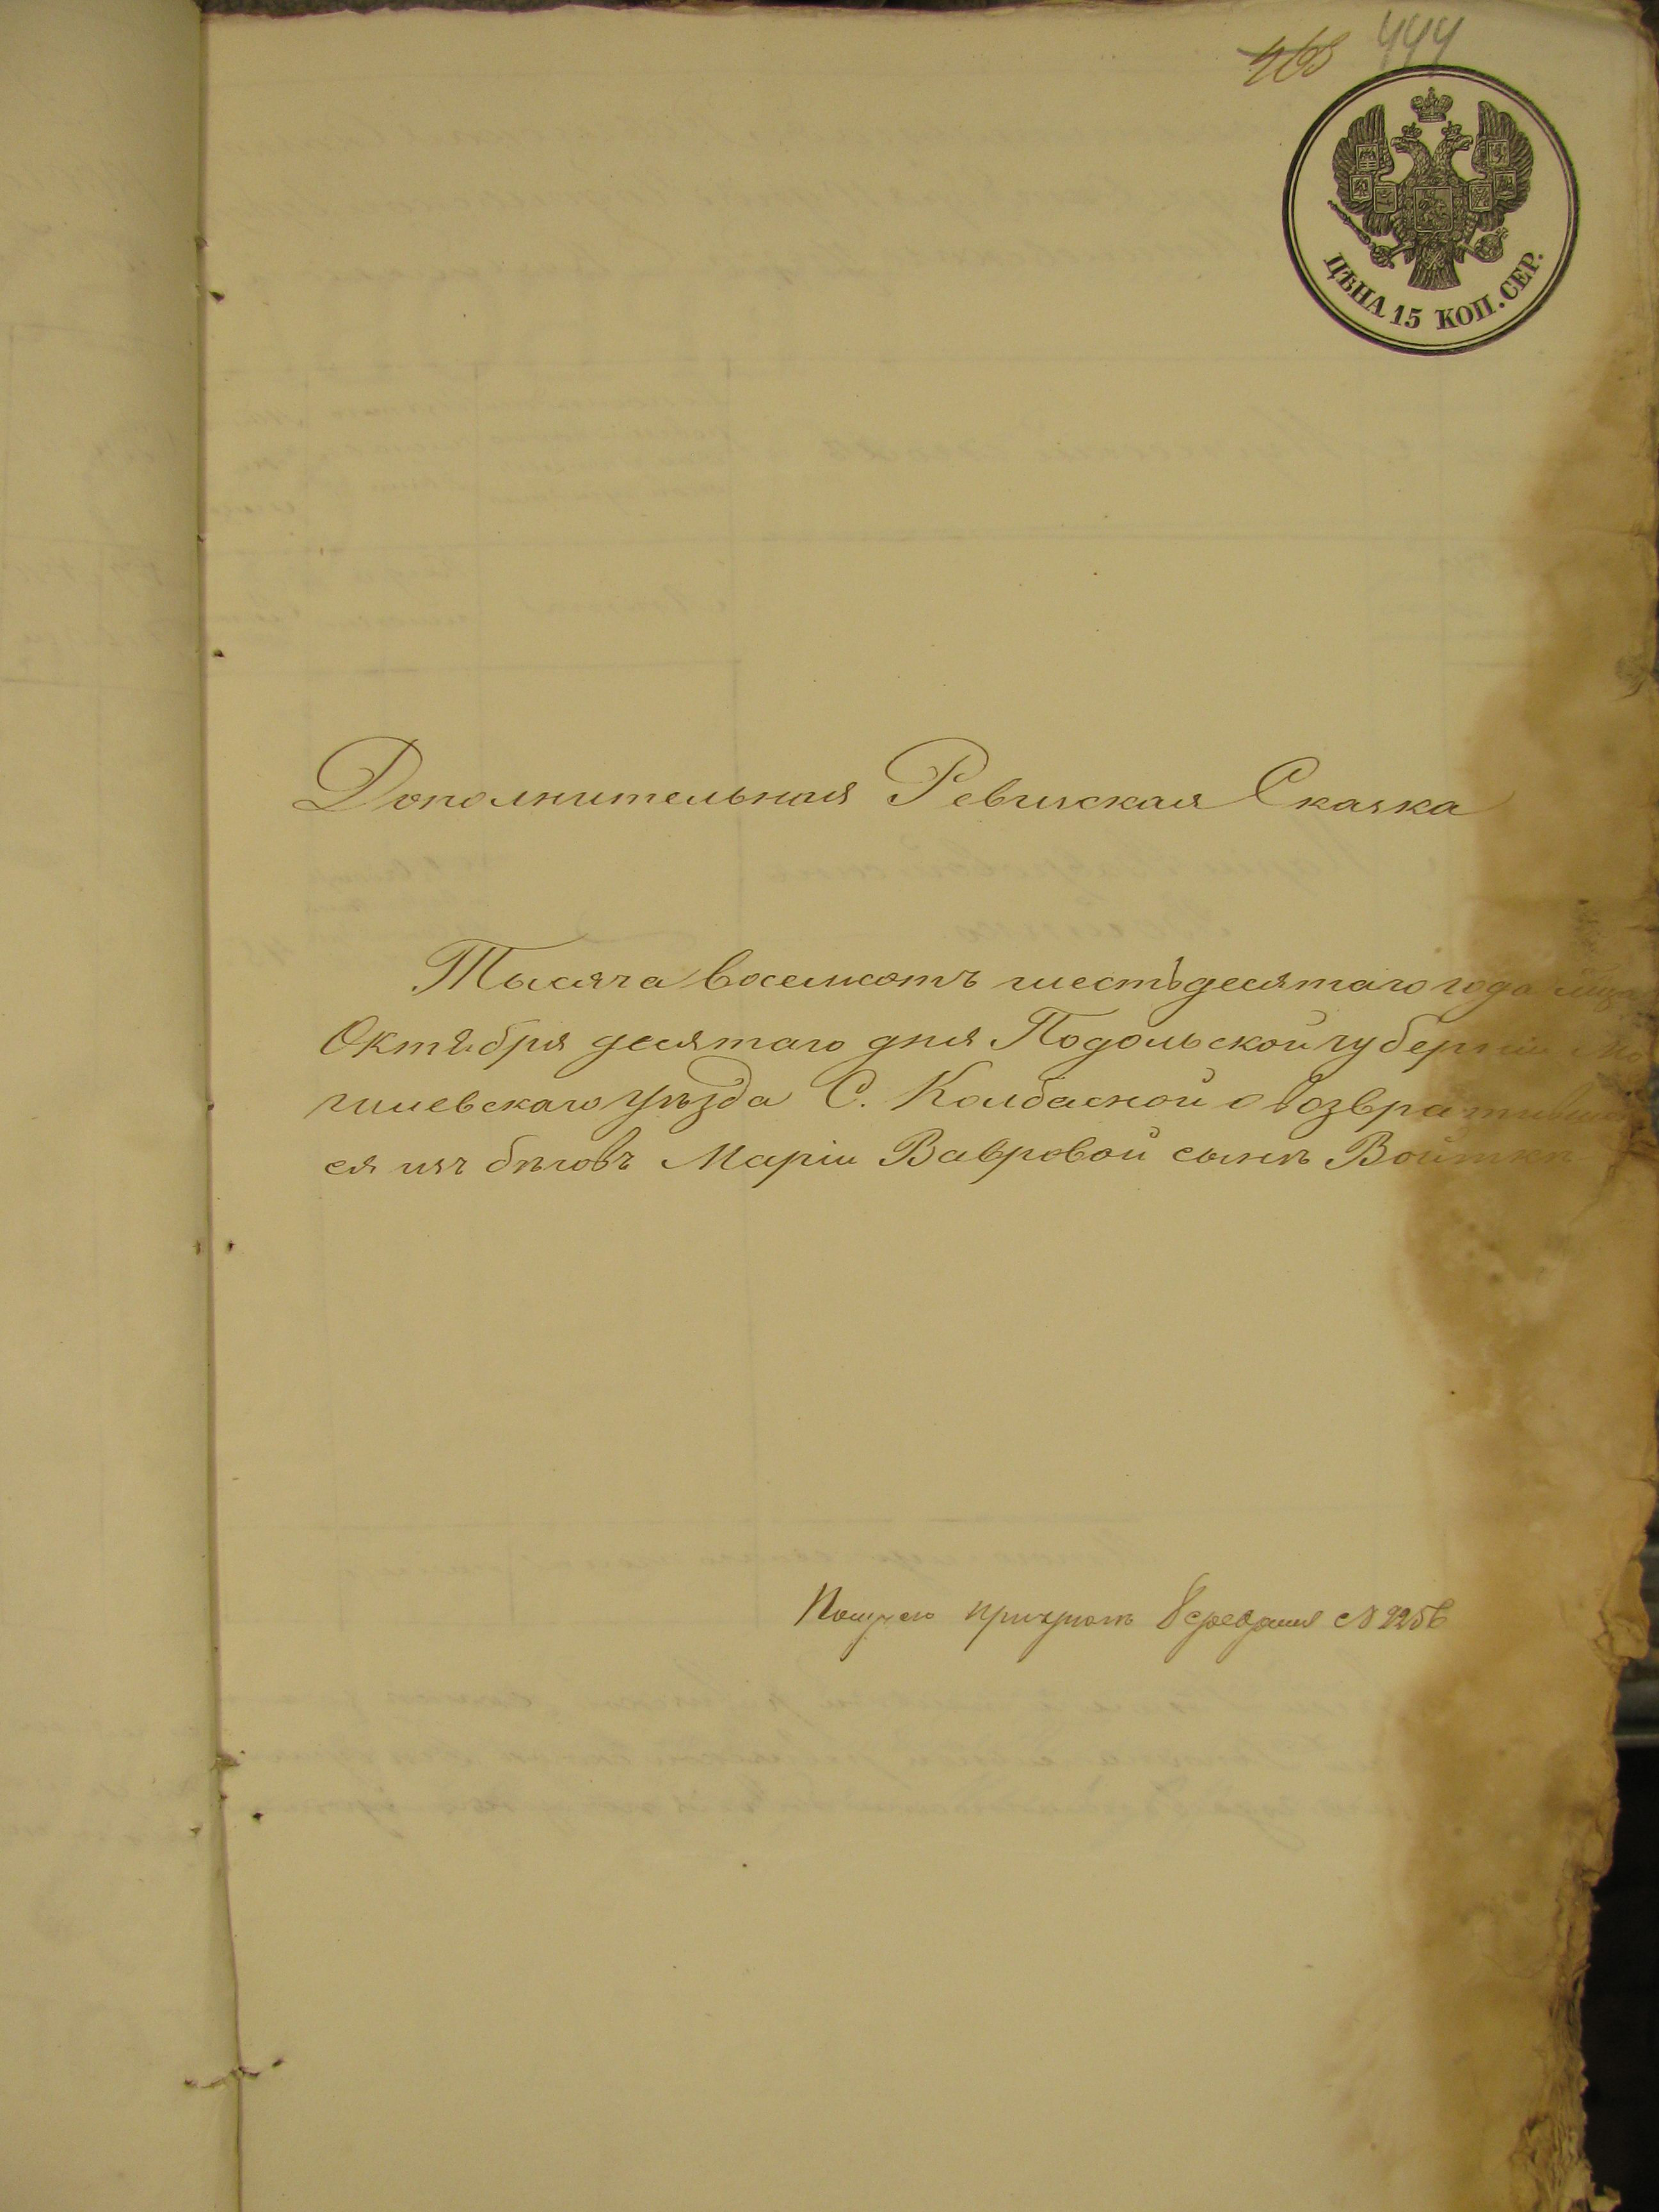 444
ЦѢНА 15 КОП. СЕР.
Дополнительная Ревизская Сказка
Тысяча восемсотъ шестьдесятаго года
Октября десятаго дня Подольской губерніи Мо
гилевскаго уѣзда С. Колбасной о возвратившем
ся изъ бѣговъ Маріи Вавровой сынѣ Войткѣ